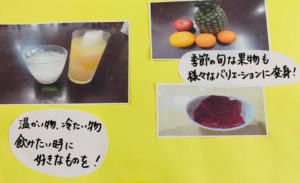 季節の旬な果物も
様々なバリエーションに変身!
温かい物、冷たい物
飲みたい時に
好きなものを!